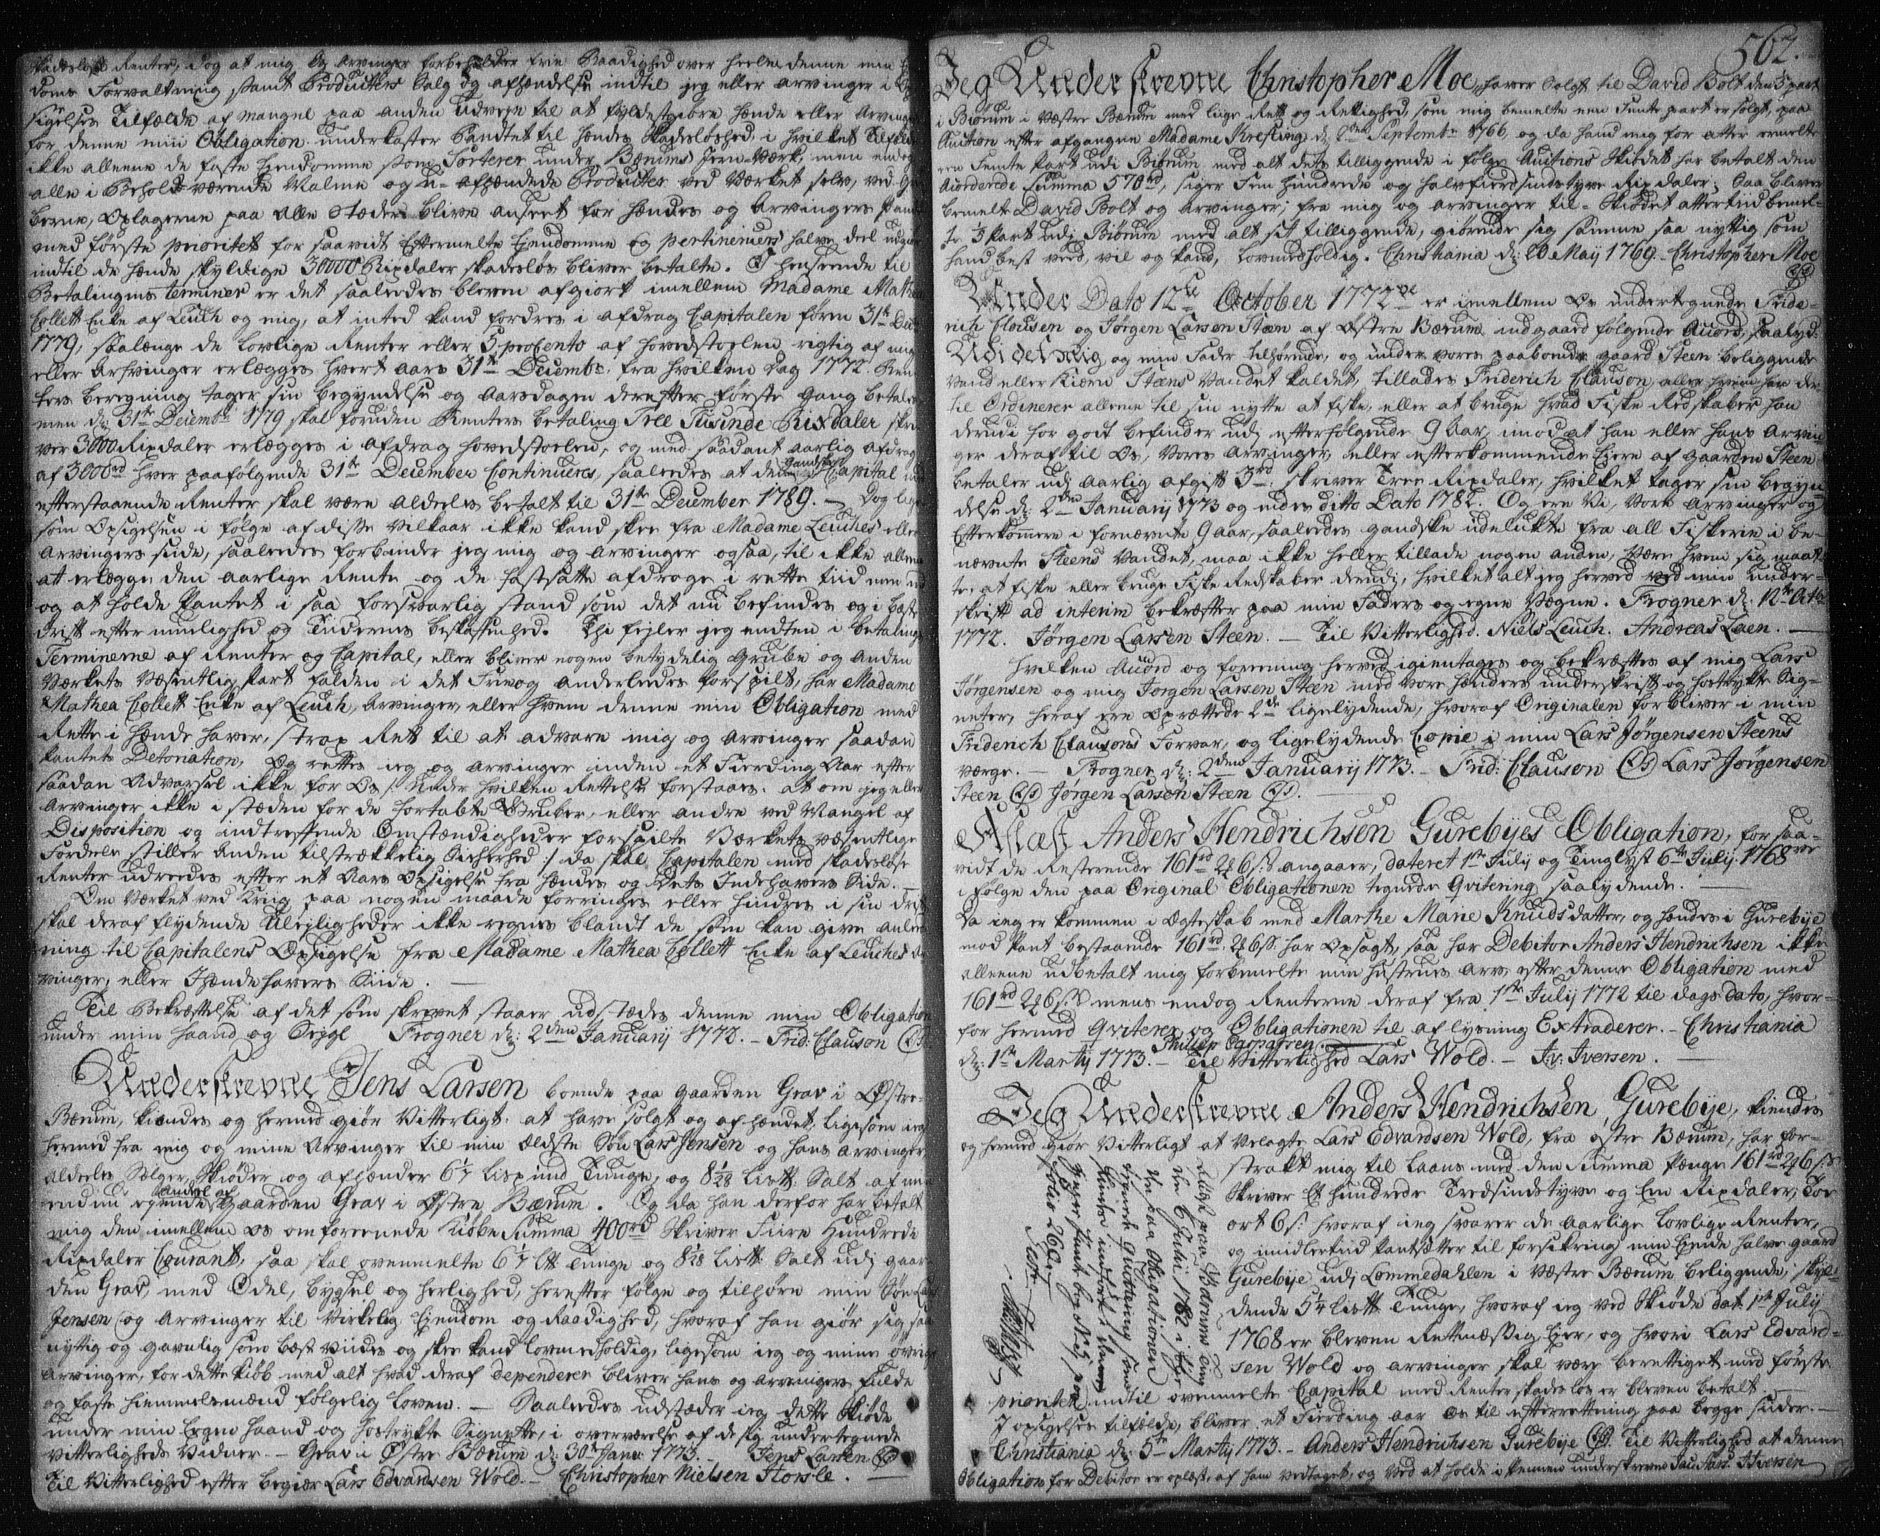 skadesløse Renter, dog at mig og Arvinger forbeholder frie Raadighed over heele denne min
doms Forvaltning samt Producters Salg og afhændelse indtil jeg eller arvinger i
sigelses Tilfælde af mangel paa anden Udveye til at fyldestgiøre hende eller Arvinger
for denne min Obligation underkaster Pandtet til hendes skadesløshed, i hvilket tilfælde
ikke alleene de faste Eyendomme som Sorterer under Bærums Jern-Værk, men endog
alle i Behold værende Malme og u-afhændede Producter ved Værket selv, ved
berne, Oplagerne paa alle Stæder blive anseet for hendes og Arvingers Pant
med første prioritet for saavidt Eftermelte Eyendomme og pertinentiers halve deel udgiør
indtil de hende skyldige 30000 Rixdaler skadesløs bliver betalte. I henseende til
Betalingens terminer er det saaledes bleven afgiort imellem Madame Mathea
Collett Enke af Leuch og mig, at intet kand fordres i afdrag Capitalen føren 31te Dec
1779, saalænge de lovlige Renter eller 5 proCento af hovedstoelen rigtig af mig
eller Arfvinger erlægges hvert aars 31te Decembr. fra hvilken Dag 1772 Ren
ters beregning tager sin begyndelse og Aarsdagen derefter første Gang betales
men d: 31te Decembr 1779 skal foruden Renters betaling Tree Tusinde Rixdaler skri
ver 3000 Rixdaler erlægges i afdrag hovedstoelen, og med saadant aarlig afdrag
af 3000rd hver paafølgende 31te December Continueres, saaledes at den gandske Capital med
efterstaaende Renter skal være aldeles betalt til 31te December 1789. — Dog lige
som Opsigelsen i følge af disse vilkaar ikke kand skee fra Madame Leuches eller
Arvingers side, saaledes forbinder jeg mig og arvinger ogsaa, til ikke allene
at erlægge den aarlige Rente og de fastsatte afdrage i rette tiid men
og at holde Pantet i saa forsvarlig stand som det nu befindes og i bæste
drift efter muelighed og Tidernes beskaffenhed. Thi feyler jeg endten i betalings
Terminerne af Renter og Capital, eller bliver nogen betydelig Grube og anden
Værkets Væsentlig part falden i det Fum og anderledes forspilt, har Madame
Mathea Collett Enke af Leuch, Arvinger eller hvem denne min Obligation med
Rette i hænde haver, strax Ret til at advare mig og arvinger saadan
Pantets Detoriation, Og rettes ieg og arvinger inden et Fierding Aar efter
saadan Advarsel ikke for Os /: Under hvilken Rettelse forstaaes: at om jeg eller
Arvinger ikke i stæden for de fortabte Gruber, eller andre ved Mangel af
Disposition og indtreffende Omstændigheder forfalte Værkets væsentlige
Fordele stiller anden tilstrækkelig Sikkerhed :/ da skal Capitalen med skadesløse
Renter udreedes efter et Aars Opsigelse fra hendes og dets Indehavers side. —
Om Værket ved Krig paa nogen maade forringes eller hindres i sin drift
skal deraf flydende Uleyligheder ikke regnes blandt de som kan give anled
ning til Capitalens Opsigelse fra Madame Mathea Collett Enke af Leuches Ar
vinger, eller Ihændehavers Siide. —
Til Bekræftelse af det som skrevet staaer udstædes denne min Obligation
under min haand og Segl Frogner d: 2den January 1772. — Frid: Clauson (L.S.)
Underskrevne Jens Larsen boende paa gaarden Grav i Østre
Bærum, kiendes og hermed giør Vitterligt at have solgt og afhændet, ligesom ieg
hermed fra mig og mine Arvinger til min ældste Søn Lars Jensen og hans arvinger
aldeles Sælger, Skiøder og afhænder 6 1/7 Lispund Tunge, og 8 1/28 Listt Salt af min
enduu eyende andeel af Gaarden Grav i Østre Bærum. Og da han derfor har betalt
mig den imellem os omforeenede Kiøbe Summa 400rd Skriver Fiire Hundrede
Rixdaler Courant, saa skal ovenmelte 6 1/7 Ltt Tunge og 8 1/28 Listt Salt udj gaar
den Grav, med Odel, bygsel og herlighed, herefter følge og tilhøre min Søn Lars
Jensen og Arvinger til Virkelig Eyendom og Raadighed, hvoraf han giør sig saa
nyttig og gavnlig som bæst viides og skee kand lovmedholdig, ligesom ieg og mine øvrige
Arvinger, for dette kiøb med alt hvad deraf dependerer bliver hans og arvingers fulde
og faste hiemmelsmænd følgelig Loven. — Saaledes udstæder ieg dette Skiøde
under min Egen Haand og hostrykte Signette, i overværelse af de sig undertegnede
Vitterligheds Vidner. — Grav i Østre Bærum d: 30te Janr 1773. — Jens Larsen (L.S.)
Til Vitterlighed efter begier Lars Edvardsen Wold. — Christopher Nielsen Horsle. —
562.
Jeg Underskrevne Christopher Moe, haver Solgt til David Bolt den 3 part
i Biørum i Væster Bærum med liige Rett og Rettighed, som mig bemelte een Fente part er solgt, paa
Auction efter afgangne Madame Krefting d: 2den Septembr 1766 og da hand mig for atter ermelte
een Fente Part udi Biørum med alt dets tilliggende i følge Auctions Skiødet har betalt den
Accorderede Summa 570rd, siger Fem hundrede og halvfierdsindstyve Rixdaler; Saa bliver
bemelte David Bolt og Arvinger, fra mig og arvinger til-Skiødet atterberbemel-
te 1/3 Part udj Biørum med alt sit tilliggende, giørende sig samme saa nyttig som
hand best veed, vil og kand, Lovmedholdig. Christiania d: 20 May 1769. Christopher Moe
(L.S.)
Under Dato 12te October 1772 er imellem Os undertegnede Fride-
rich Clausen og Jørgen Larsen Steen af Østre Bærum indgaaed følgende Accord, saalyd:
Udi det mig og min Fader tilhørende, og under vores paaboende gaard Steen beliggende
Vand eller kiern Steens Vandet kaldet, tillades Friderich Clauson eller hvem han der
til Ordinerer alleene til sin nytte at fiske, eller at bruge hvad Fiske Redskaber han
derudi for godt befinder udj efterfølgende 9 Aar, imod at han eller hans Arvin
ger deraf til Os, Vores Arvinger eller efterkommende Eiere af gaarden Steen
betaler udj aarlig afgift 3rd: skriver Tree Rixdaler, hvilket tager sin begyn
delse d: 2den January 1773 og endes ditto Dato 1782. Og ere Vi, Vore Arvinger og
Efterkommere i fornævnte 9 aar, saaledes gandske udelukte fra all Fiskerie i be-
nævnte Steens Vandet, maa ikke heller tillade nogen anden, være hvem sig maat-
te, at fiske eller bruge Fiske Redskaber derudj, hvilket alt jeg herved ved min Under-
skrift ad interim bekræfter paa min Faders og egne Vægne. Frogner d: 12te Octbr
1772. Jørgen Larsen Steen. — Til Vitterlighed. Niels Leuch. Andreas Laen. —
Hvilken Accord og foreening herved igientages og bekræftes af mig Lars
Jørgensen og mig Jørgen Larsen Steen med vore hænders underskrift og hostrykte Sig-
neter, heraf ere Oprættede 2de ligelydende, hvoraf Originalen forbliver i min
Friderich Clausons Forvar, og ligelydende Copie i min Lars Jørgensen Steens
værge. — Frogner d: 2den January 1773. — Frid: Clauson (L.S.) Lars Jørgensen
Steen (L.S.) Jørgen Larsen Steen (L.S.).
Aflæst Anders Hendrichsen Gurebyes Obligation, for saa-
vidt de Resterende 161rd 2 ort 6 s. angaaer, dateret 1te July og Tinglyst 6te July 1768
i følge den paa Original Obligationen tegnede Qvitering saalydende. —
Da ieg er kommen i Ægteskab med Marthe Marie Knudsdatter, og hendes i Gurebye
mod Pant bestaaende 161rd 2 ort 6 s. har Opsagt, saa har Debitor Anders Hendrichsen ikke
alleene udbetalt mig forbemelte min hustrues Arv efter denne Obligation med
161rd 2 ort 6 s. mens endog Renterne deraf fra 1te July 1772 til dags dato, hvor-
for hermed Qviterer og Obligationen til aflysning Extraderer. — Christiania
d: 1te Marty 1773. — Phillip Caspersen. Til Vitterlighed Lars Wold. — Iv: Iversen. —
Jeg Underskrevne Anders Hendrichsen Gurebye, kiendes
og hermed Giør Vitterligt at Velagte Lars Edvardsen Wold, fra østre Bærum, har for-
strakt mig til Laans med den Summa Penge 161rd 2 ort 6 s.
Skriver Et hundrede Tredsindstyve og Een Rixdaler, Toe
ort 6 s. hvoraf ieg svarer de aarlige Lovlige Renter,
og imidlertid Pantsætter til forsikring min Eyende halve gaard
Gurebye udj Lommedahlen i Væstre Bærum beliggende, skyl-
dende 5 1/4 Listt Tunge, hvoraf ieg ved Skiøde dat. 1te July
1768 er bleven Rettmæssig Eyer, og hvori Lars Edvard-
sen Wold og arvinger skal være berettiget med første
prioritet indtil ovenmelte Capital med Renter skadesløs er bleven betalt. —
I opsigelses tilfælde, bliver et Fierding aar os til efterrettning paa begge sider. —
Christiania d: 5te Marty 1773. — Anders Hendrichsen Gurebye (L.S.) Til Vitterlighed at denne
Obligation for Debitor er oplæst, af ham vedtaget, og ved at holde i Pennen underskreven Testere. I Iversen